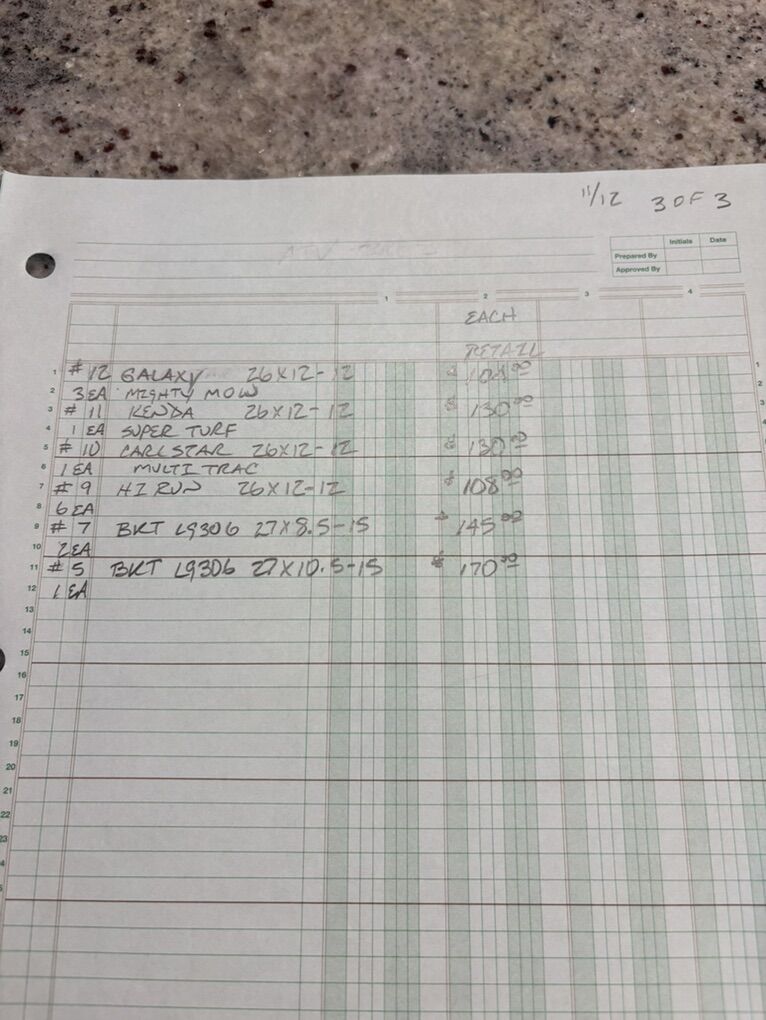 11/12 3 OF 3
Initials Date
Prepared By
Approved By
1 2 3 4
EACH
RETAIL
1 #12 GALAXY 26X12-12 $ 108.00 1
2 3 EA MIGHTY MOW 2
3 #11 KENDA 26X12-12 $ 130.00 3
4 1 EA SUPER TURF 4
5 #10 CARLSTAR 26X12-12 $ 130.00 5
6 1 EA MULTI TRAC 6
7 #9 HI RUN 26X12-12 $ 108.00 7
8 6 EA 8
9 #7 BKT L9306 27X8.5-15 $ 145.00 9
10 2 EA 10
11 #5 BKT L9306 27X10.5-15 $ 170.00 11
12 1 EA 12
13 13
14 14
15 15
16 16
17 17
18 18
19 19
20 20
21 21
22 22
23
4
5